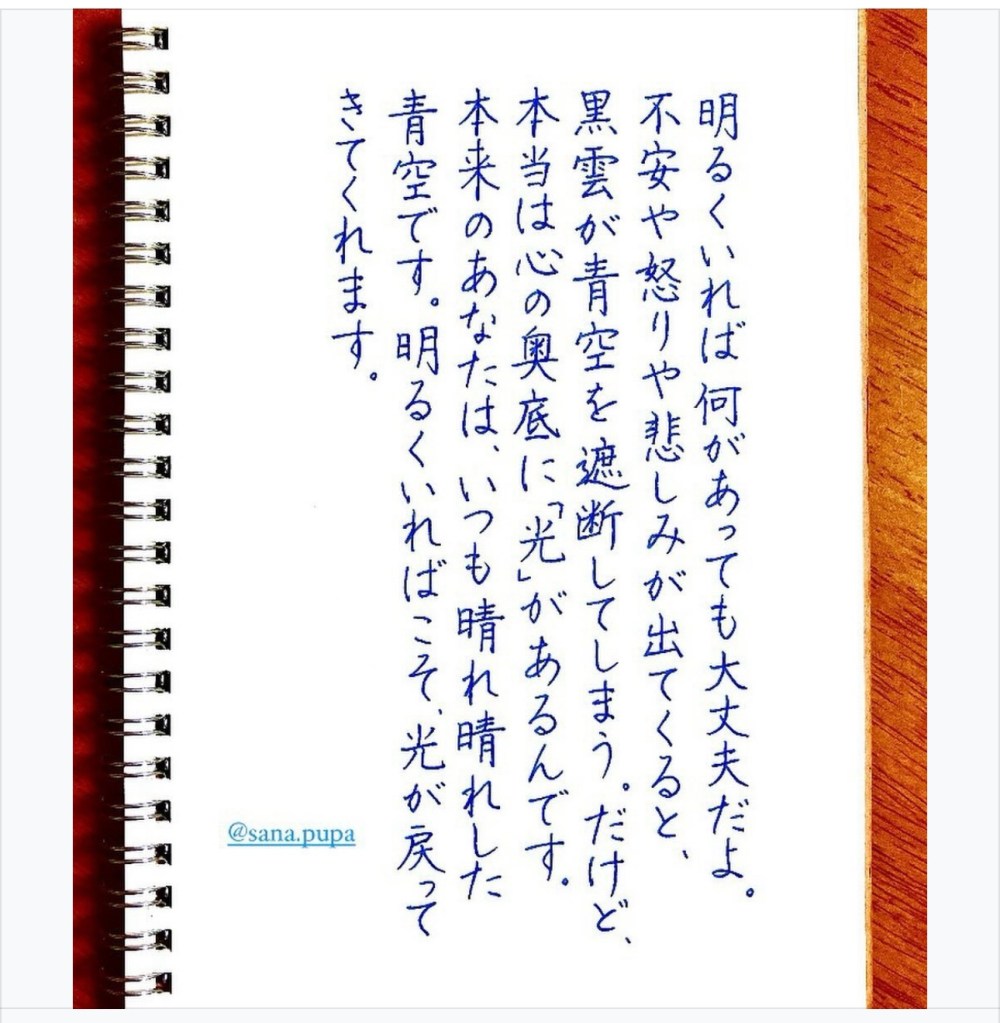 明るくいれば何があっても大丈夫だよ。
不安や怒りや悲しみが出てくると、
黒雲が青空を遮断してしまう。だけど、
本当は心の奥底に「光」があるんです。
本来のあなたは、いつも晴れ晴れした
青空です。明るくいればこそ、光が戻って
きてくれます。
@sana.pupa